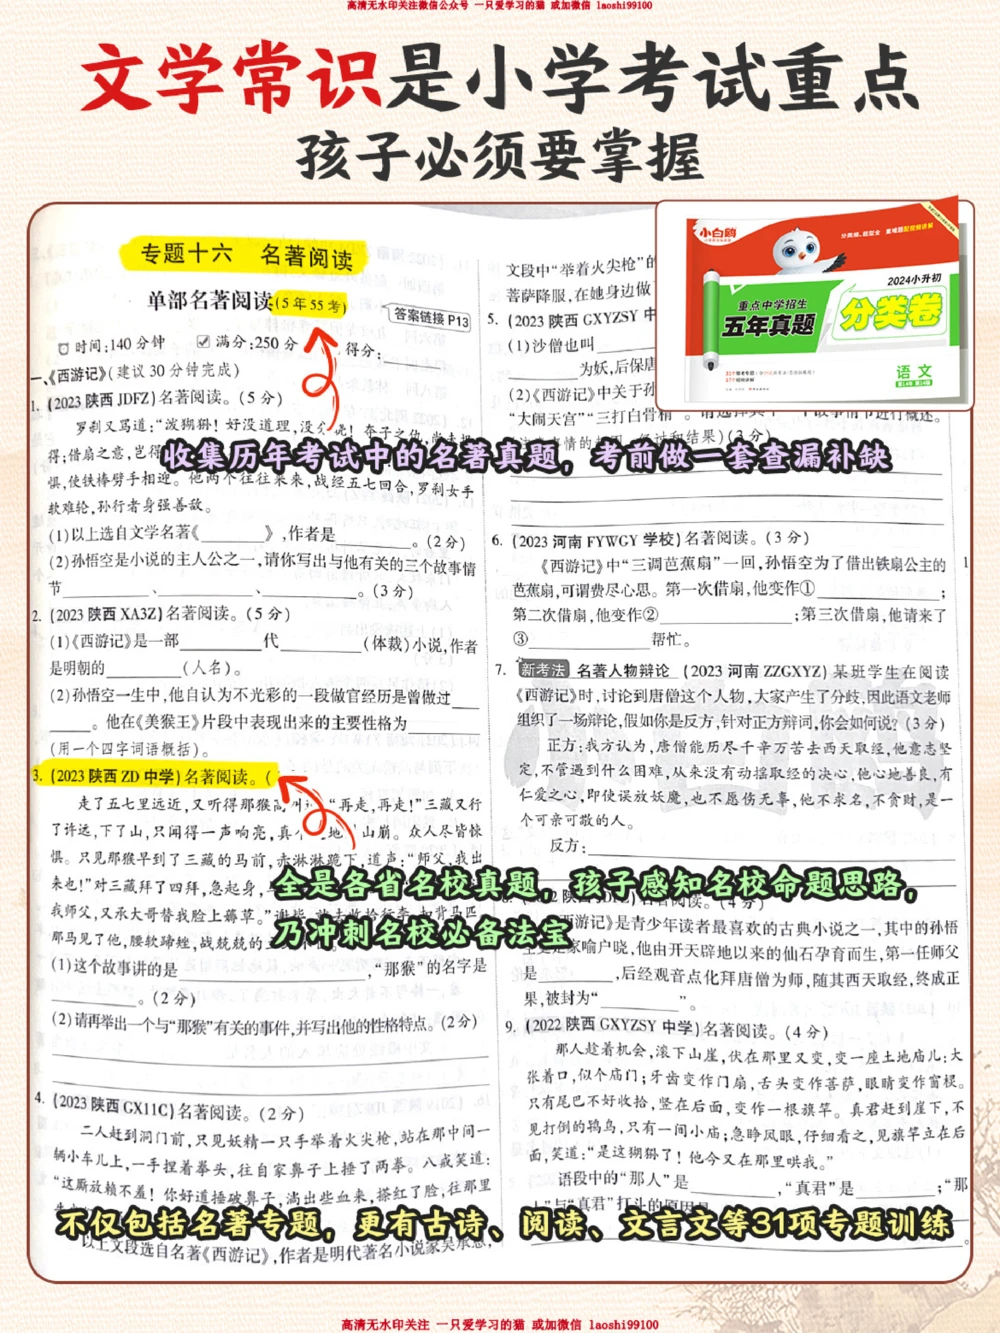 高清无水印关注微信公众号 一只爱学习的猫 或加微信 laoshi99100
文学常识是小学考试重点
孩子必须要掌握
专题十六 名著阅读
单部名著阅读(5年55考)
答案链接 P13
时间:140分钟 满分:250分 得分:
一、《西游记》(建议30分钟完成)
1. (2023陕西JDFZ)名著阅读。(5分)
罗刹又骂道:“泼猢狲!好没道理,没
得;借扇之意,岂得
惧,使铁棒劈手相迎。他两个往往来来,战经五七回合,罗刹女手
软难轮,孙行者身强善敌。
(1)以上选自文学名著《________》,作者是________。(2分)
(2)孙悟空是小说的主人公之一,请你写出与他有关的三个故事情
节________、________、________。(3分)
2. (2023陕西XA3Z)名著阅读。(5分)
(1)《西游记》是一部________代________(体裁)小说,作者
是明朝的________(人名)。
(2)孙悟空一生中,他自认为不光彩的一段做官经历是曾做过____
____。他在《美猴王》片段中表现出来的主要性格为________
(用一个四字词语概括)。
3. (2023陕西ZD中学)名著阅读。(
走了五七里远近,又听得那猴高叫道:“再走,再走!”三藏又行
了许远,下了山,只闻得一声响亮,真个地 山崩。众人尽皆悚
惧。只见那猴早到了三藏的马前,赤淋淋跪下,道声:“师父,我出
来也!”对三藏拜了四拜,急起身,
我师父,又承大哥替我脸上薅草。”谢毕,
那马见了他,腰软蹄矬,战兢兢的
(1)这个故事讲的是________,“那猴”的名字是
________。(2分)
(2)请再举出一个与“那猴”有关的事件,并写出他的性格特点。(2分)
4. (2023陕西GX11C)名著阅读。(2分)
二人赶到洞门前,只见妖精一只手举着火尖枪,站在那中间一
辆小车儿上,一手捏着拳头,往自家鼻子上捶了两拳。八戒笑道:
“这厮放赖不羞!你好道捶破鼻子,淌出些血来,搽红了脸,往那里
以上文段选自名著《西游记》,作者是明代著名小说家吴承恩,
文段中“举着火尖枪”的
菩萨降服,在她身边做
5. (2023陕西GXYZSY中
(1)沙僧也叫
________为妖,后保唐
(2)《西游记》中关于孙
“大闹天宫”“三打白骨精”
6. (2023河南FYWGY学校)名著阅读。(3分)
《西游记》中“三调芭蕉扇”一回,孙悟空为了借出铁扇公主的
芭蕉扇,可谓费尽心思。第一次借扇,他变作①________;
第二次借扇,他变作②________;第三次借扇,他请来了
③________帮忙。
7. 新考法 名著人物辩论 (2023河南ZZGXYZ)某班学生在阅读
《西游记》时,讨论到唐僧这个人物,大家产生了分歧,因此语文老师
组织了一场辩论,假如你是反方,针对正方辩词,你会如何说?(3分)
正方:我方认为,唐僧能历尽千辛万苦去西天取经,他意志坚
定,不管遇到什么困难,从来没有动摇取经的决心,他心地善良,有
仁爱之心,即使误放妖魔,也不愿伤无辜,他不求名,不贪财,是一
个可亲可敬的人。
反方:
《西游记》是青少年读者最喜欢的古典小说之一,其中的孙悟
空更是家喻户晓,他由开天辟地以来的仙石孕育而生,第一任师父
是________,后经观音点化拜唐僧为师,随其西天取经,终成正
果,被封为“________”。
9. (2022陕西GXYZSY中学)名著阅读。(4分)
那人趁着机会,滚下山崖,伏在那里又变,变一座土地庙儿:大
张着口,似个庙门;牙齿变作门扇,舌头变作菩萨,眼睛变作窗棂。
只有尾巴不好收拾,竖在后面,变作一根旗竿。真君赶到崖下,不
见打倒的鸨鸟,只有一间小庙;急睁凤眼,仔细看之,见旗竿立在后
面,笑道:“是这猢狲了!他今又在那里哄我。”
语段中的“那人”是________,“真君”是________;“那
小白鸥
2024小升初
重点中学招生
五年真题
分类卷
语文
收集历年考试中的名著真题,考前做一套查漏补缺
全是各省名校真题,孩子感知名校命题思路,
乃冲刺名校必备法宝
不仅包括名著专题,更有古诗、阅读、文言文等31项专题训练
高清无水印关注 一只爱学习的猫 或加微信 laoshi99100